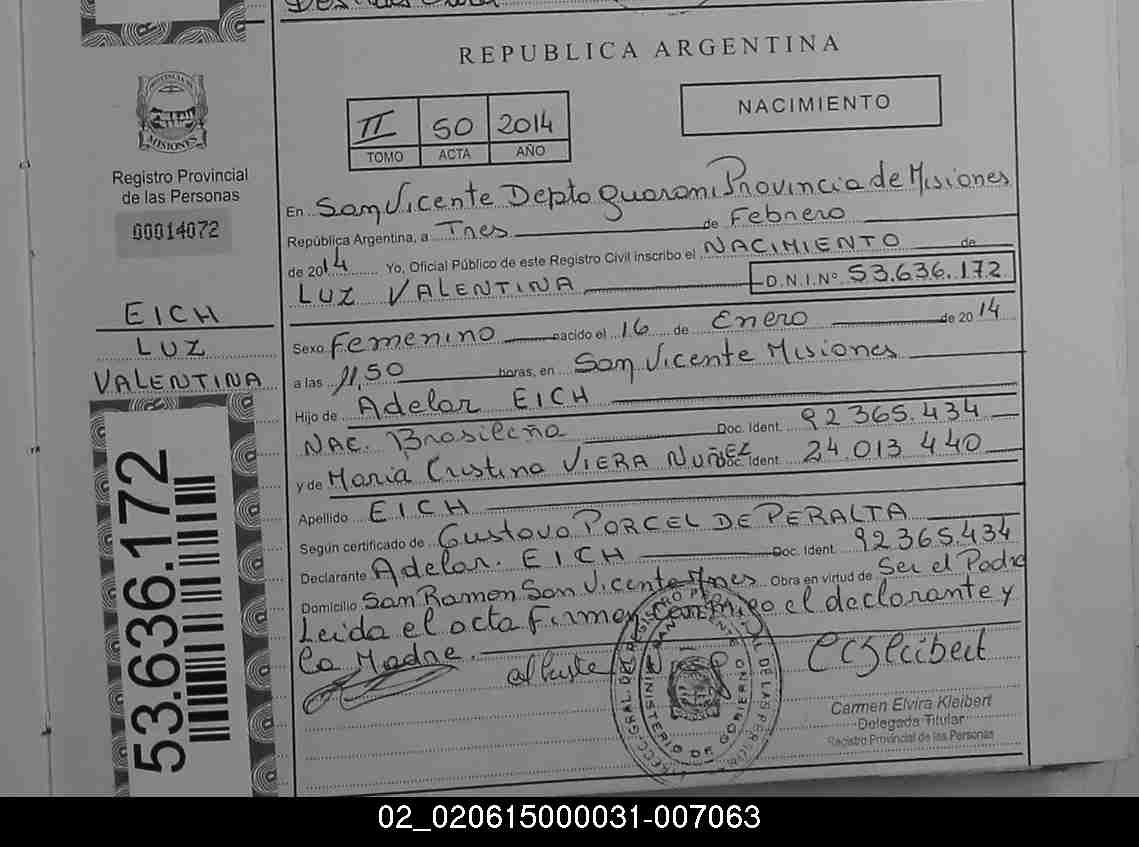 REPUBLICA ARGENTINA
NACIMIENTO
II 50 2014
TOMO ACTA AÑO
PROVINCIA DE
MISIONES
Registro Provincial
de las Personas
00014072
EICH
LUZ
VALENTINA
53.636.172
En San Vicente Depto Guarani Provincia de Misiones
República Argentina, a Tres de Febrero
de 2014 Yo, Oficial Público de este Registro Civil inscribo el NACIMIENTO de
LUZ VALENTINA D.N.I.Nº 53.636.172
Sexo Femenino nacido el 16 de Enero de 2014
a las 11,50 horas, en San Vicente Misiones
Hijo de Adelar EICH
NAC. Brasileña Doc. Ident. 92 365.434
y de Maria Cristina VIERA NUÑEZ Doc. Ident 24.013 440
Apellido EICH
Según certificado de Gustavo PORCEL DE PERALTA
Declarante Adelar. EICH Doc. Ident. 92365.434
Domicilio San Ramon San Vicente Mnes Obra en virtud de Ser el Padre
Leida el acta Firman conmigo el declarante y
la Madre.
Carmen Elvira Kleibert
Delegada Titular
Registro Provincial de las Personas
MINISTERIO DE GOBIERNO
02_020615000031-007063